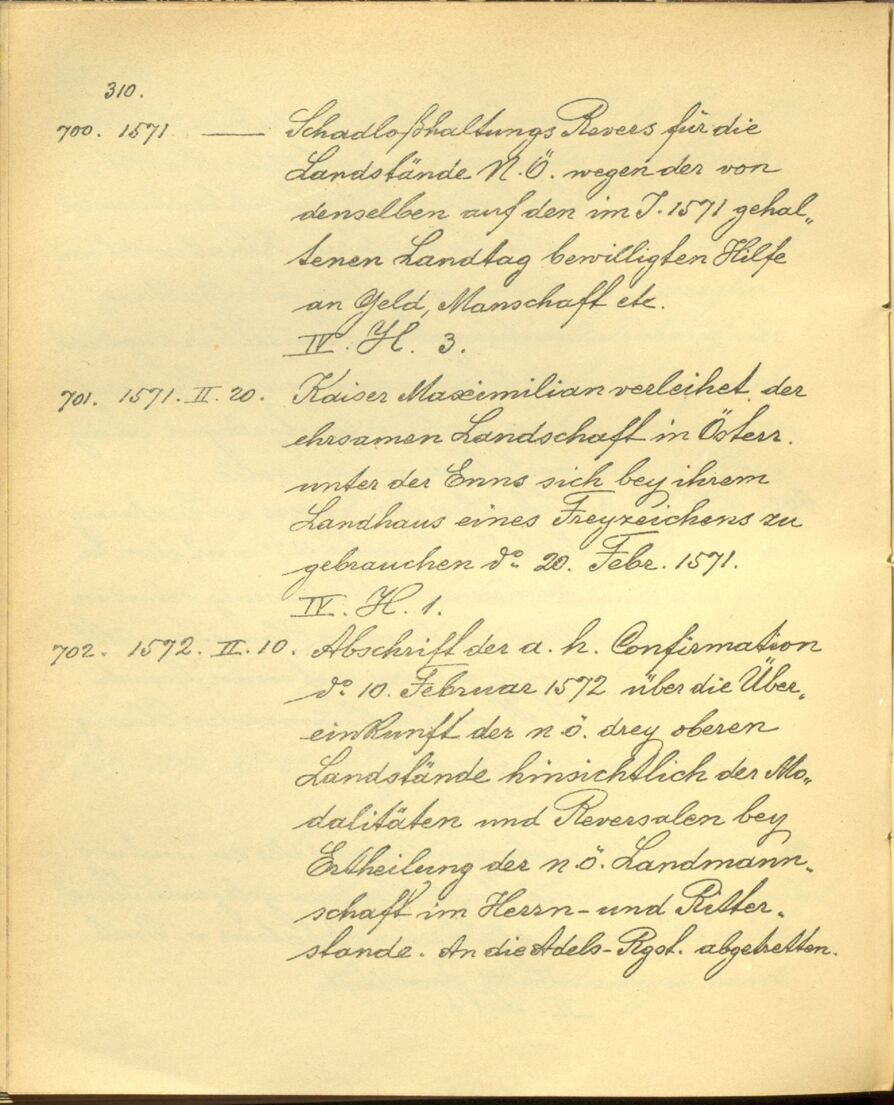 310.
700. 1571 — Schadloßhaltungs Revers für die
Landstände N.Ö. wegen der von
denselben auf den im J. 1571 gehal„
tenen Landtag bewilligten Hilfe
an Geld, Manschaft etc.
IV. H. 3.
701. 1571. II. 20. Kaiser Maximilian verleihet der
ehrsamen Landschaft in Österr.
unter der Enns sich bey ihrem
Landhaus eines Freyzeichens zu
gebrauchen do 20. Febr. 1571.
IV. H. 1.
702. 1572. II. 10. Abschrift der a. h. Confirmation
do 10. Februar 1572 über die Über„
einkunft der n.ö. drey oberen
Landstände hinsichtlich der Mo„
dalitäten und Reversalen bey
Ertheilung der n.ö. Landmann„
schaft im Herrn- und Ritter„
stande. An die Adels-Rgst. abgetretten.